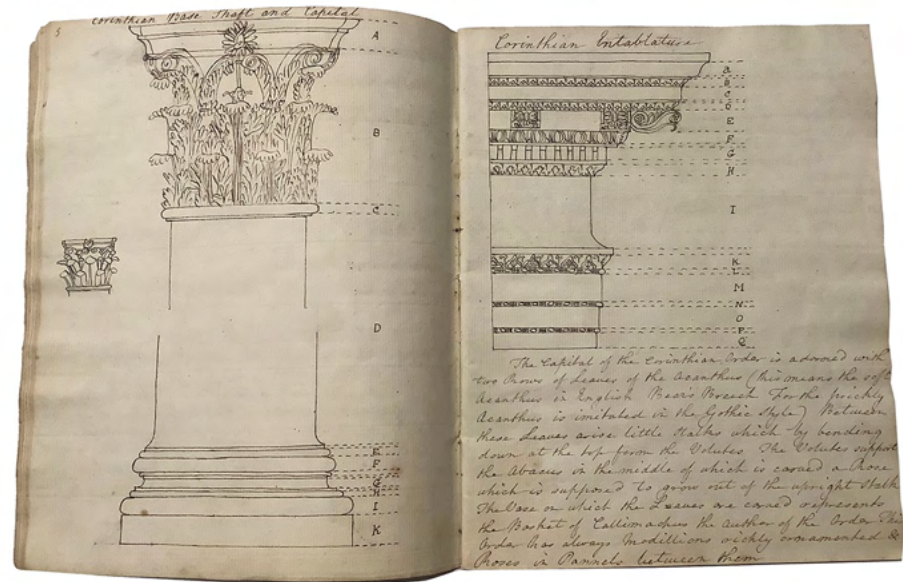 5
Corinthian Base Shaft and Capital
A
B
C
D
E
F
G
H
I
K
Corinthian Entablature
a
B
C
D
E
F
G
H
I
K
L
M
N
O
P
Q
The Capital of the Corinthian Order is adorned with
two Rows of Leaves of the Acanthus (this means the soft
Acanthus in English Bear's Breech For the prickly
Acanthus is imitated in the Gothic Style) Between
these Leaves arise little Stalks which by bending
down at the top form the Volutes. The Volutes support
the Abacus in the middle of which is carved a Rose
which is supposed to grow out of the upright Stalk
The Vase on which the Leaves are carved represents
the Basket of Callimachus the author of the Order This
Order has always Modillions richly ornamented &
Roses in Pannels between them